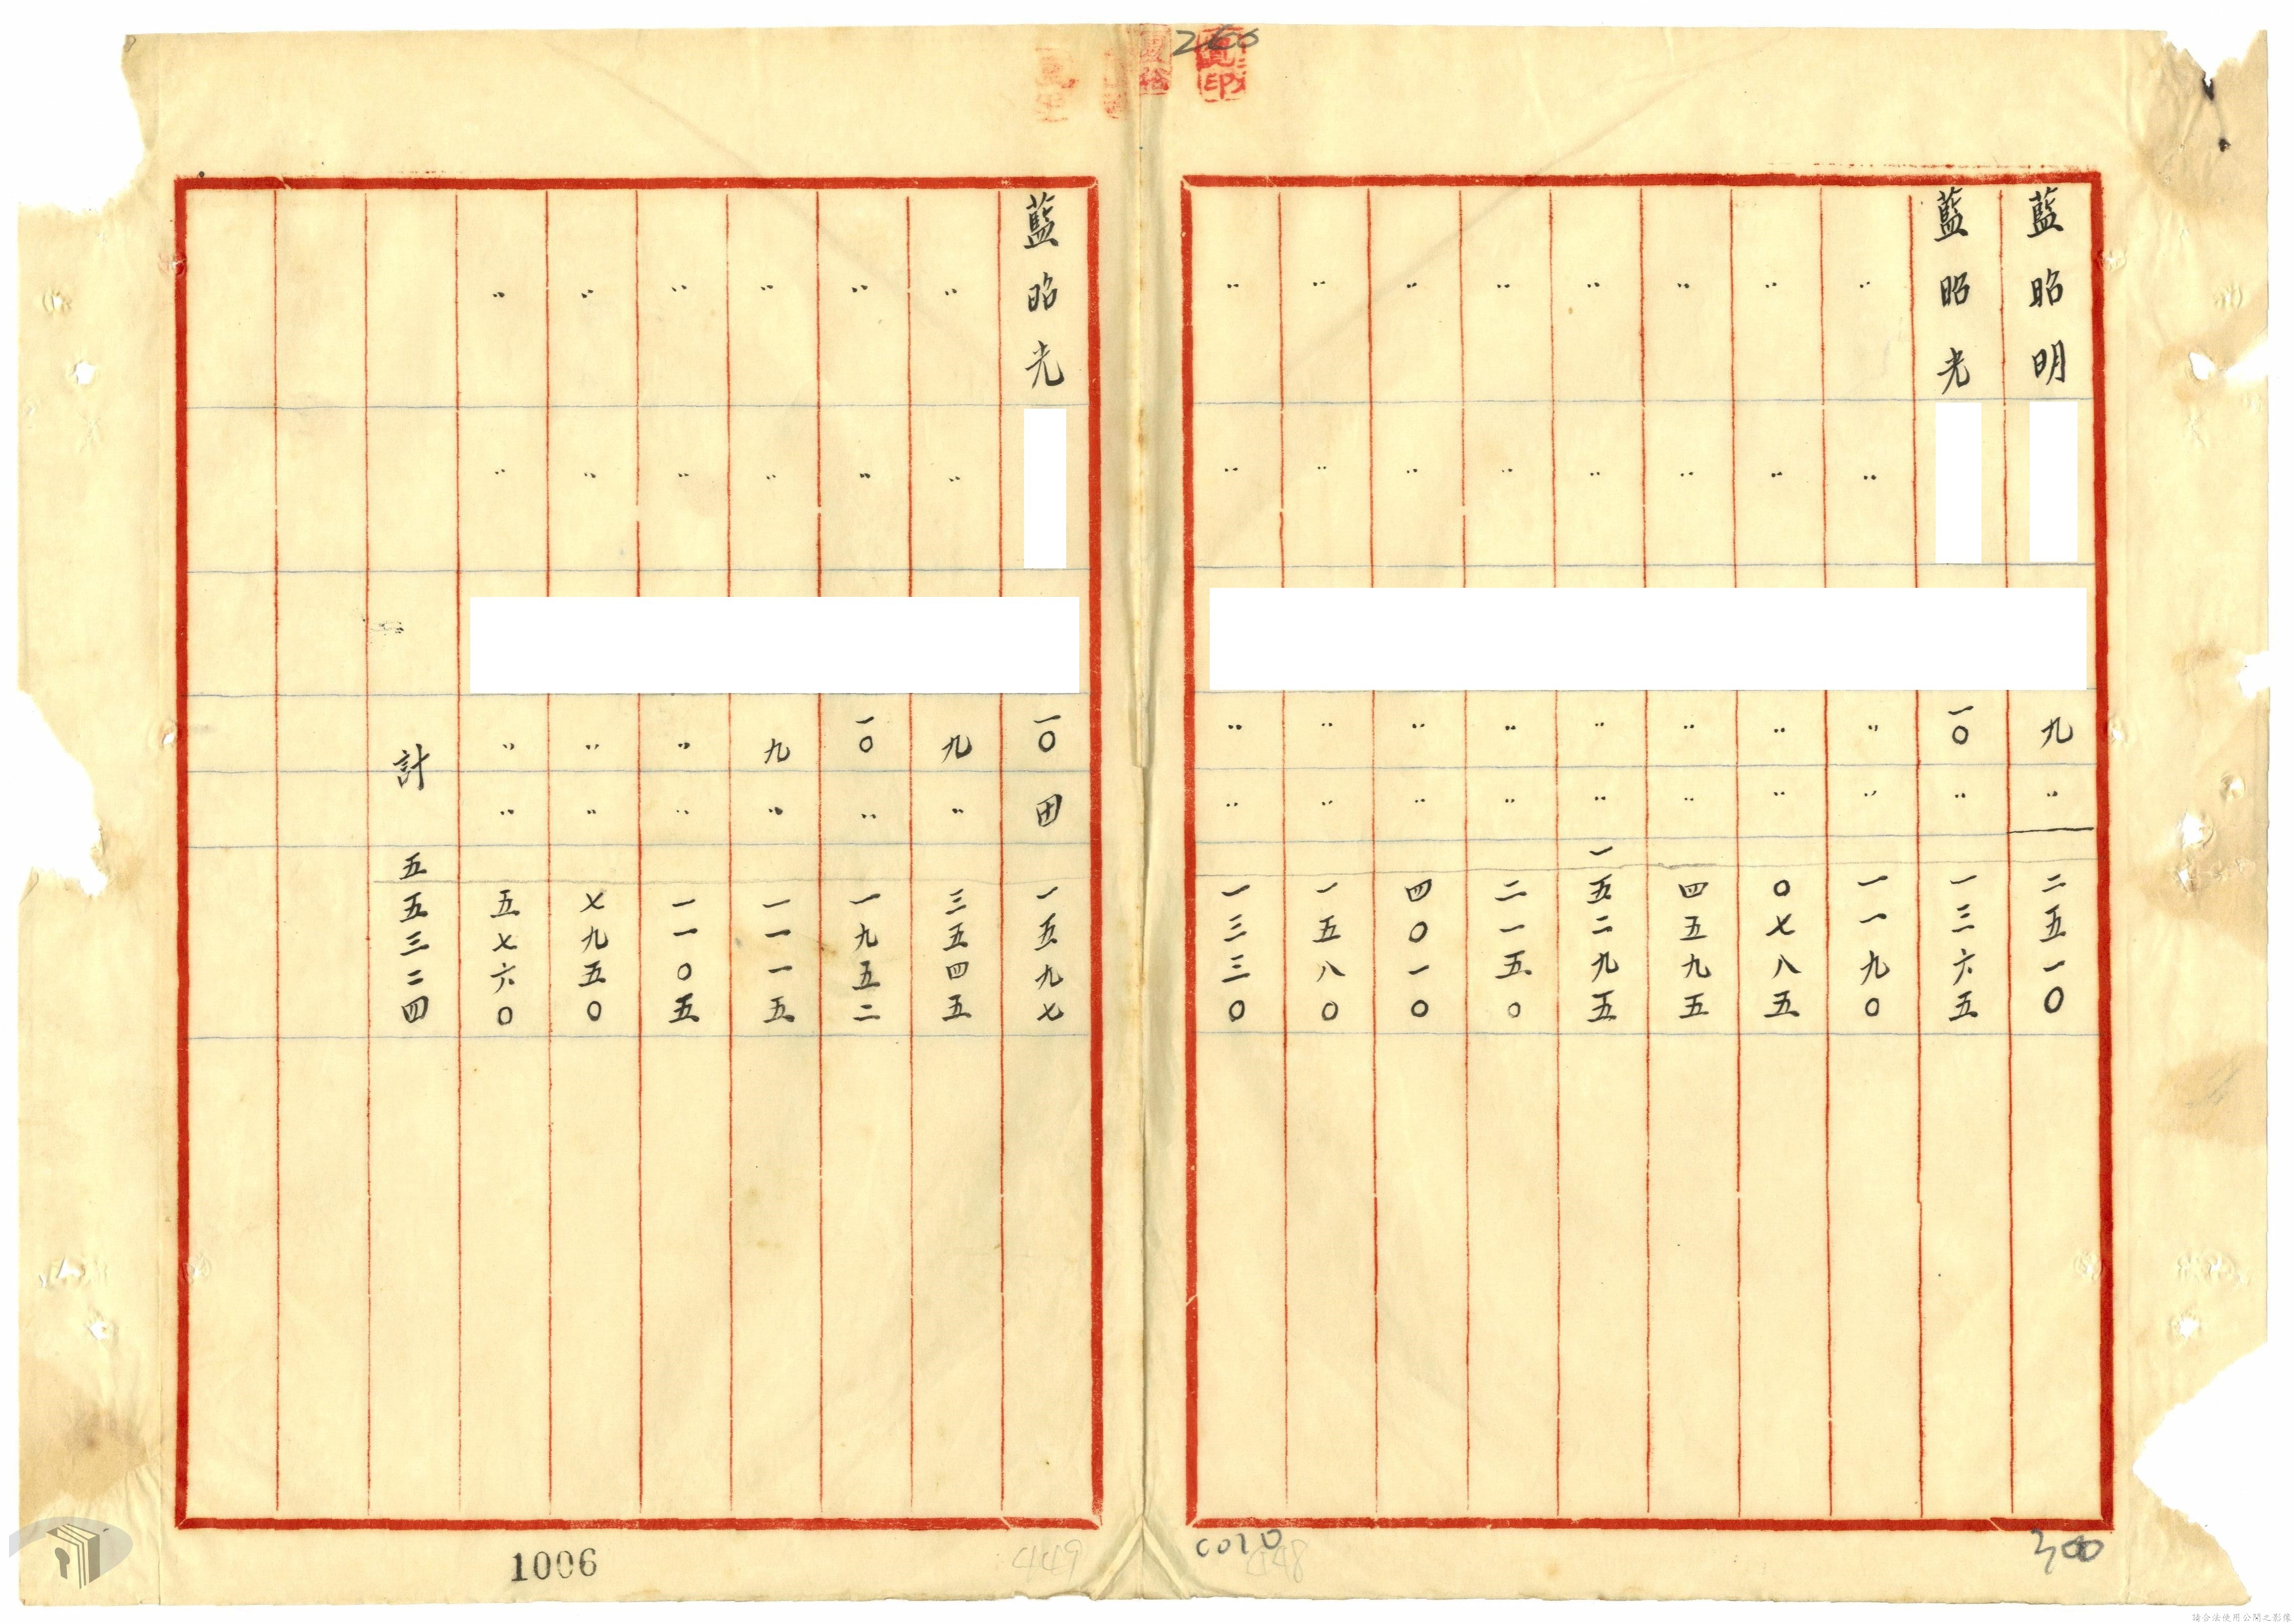 藍昭明 九 〃 二五一〇
藍昭光 一〇 〃 一三六五
〃 〃 〃 〃 一一九〇
〃 〃 〃 〃 〇七八五
〃 〃 〃 〃 四五九五
〃 〃 〃 〃 一五二九五
〃 〃 〃 〃 二一五〇
〃 〃 〃 〃 四〇一〇
〃 〃 〃 〃 一五八〇
〃 〃 〃 〃 一三三〇
藍昭光 一〇 田 一五九七
〃 〃 九 〃 三五四五
〃 〃 一〇 〃 一九五二
〃 〃 九 〃 一一一五
〃 〃 〃 〃 一一〇五
〃 〃 〃 〃 七九五〇
〃 〃 〃 〃 五七六〇
計 五五三二四
300
448
449
1006
請合法使用公開之影像